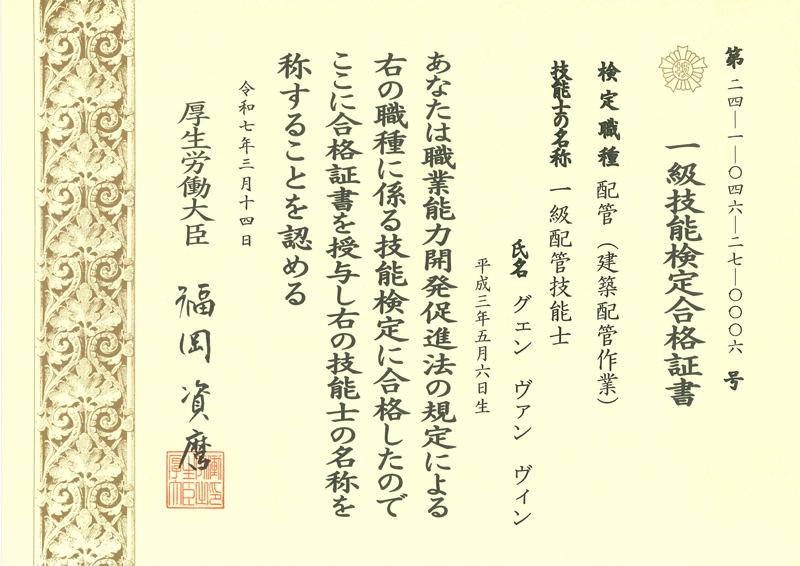 第二四―一―〇四六―二七―〇〇〇六号
一級技能検定合格証書
検定職種 配管(建築配管作業)
技能士の名称 一級配管技能士
氏名 グェン ヴァン ヴィン
平成三年五月六日生
あなたは職業能力開発促進法の規定による
右の職種に係る技能検定に合格したので
ここに合格証書を授与し右の技能士の名称を
称することを認める
令和七年三月十四日
厚生労働大臣 福岡資麿